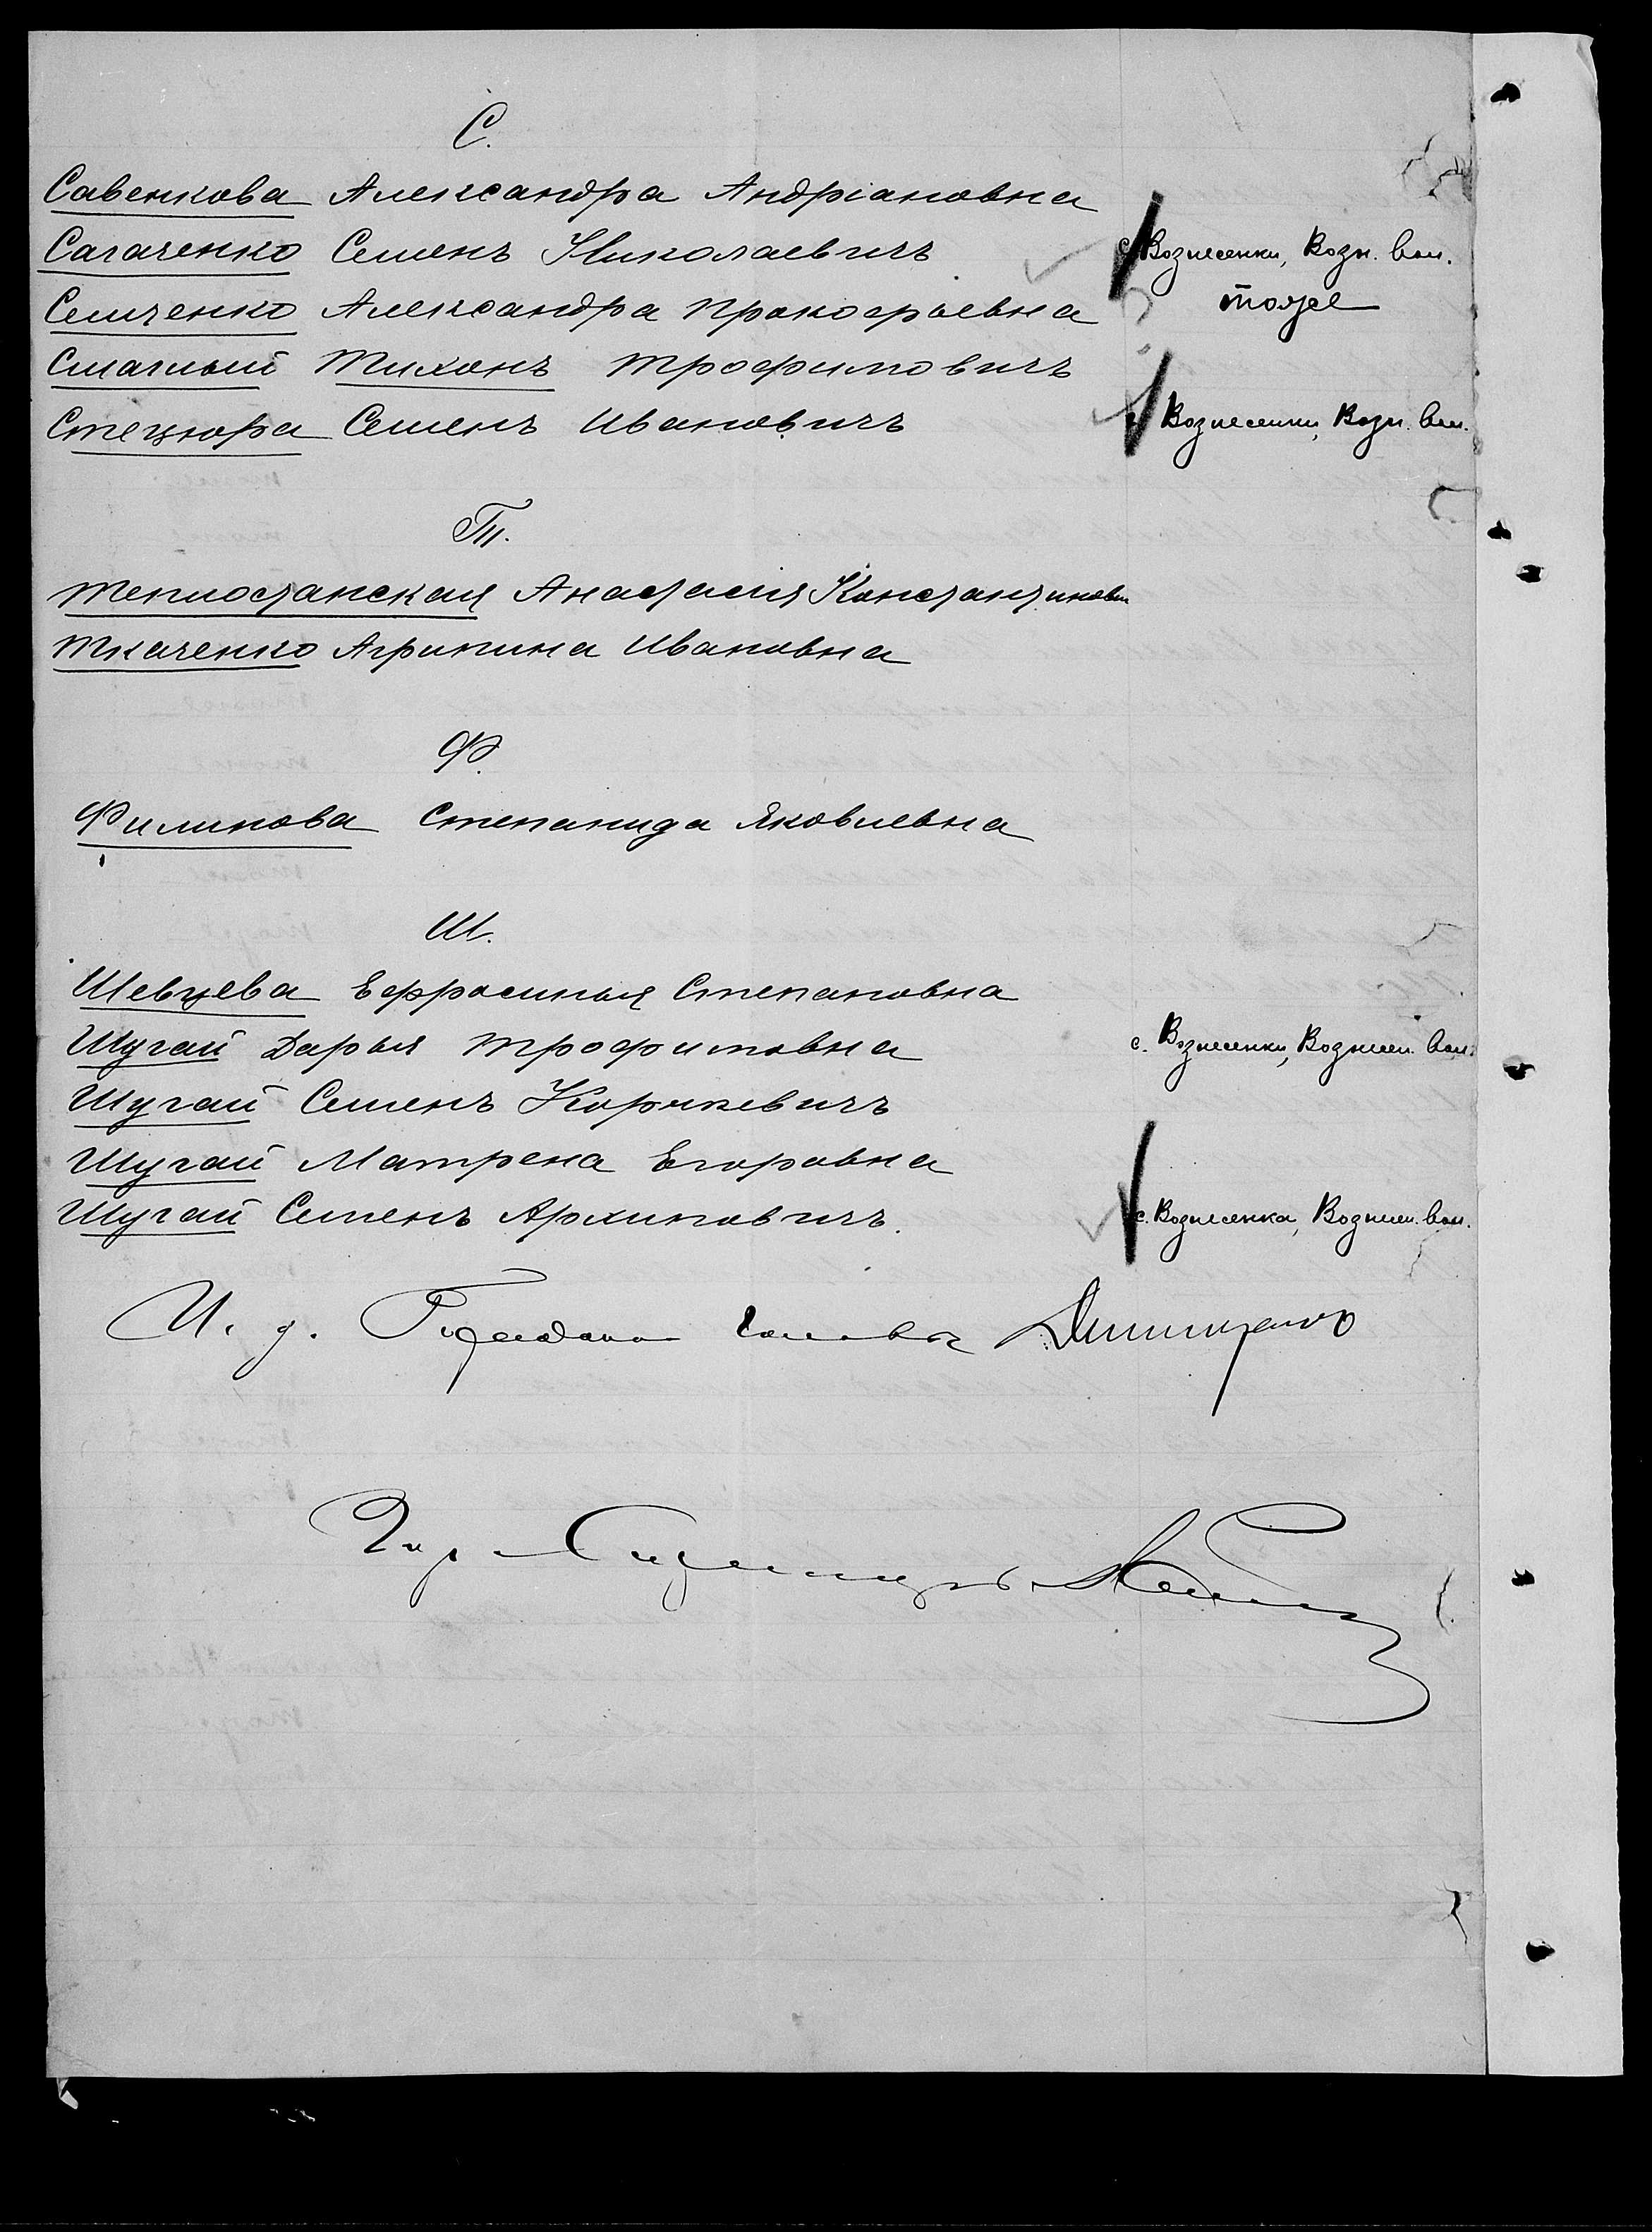 С.
Савенкова Александра Андріановна
Сагаченко Семенъ Николаевичъ с. Вознесенки, Возн. вол.
Семченко Александра Прокофьевна тоже
Смаглый Тихонъ Трофимовичъ
Стецюра Семенъ Ивановичъ с. Вознесенки, Возн. вол.
Т.
Теплостанская Анастасія Константинов
Ткаченко Агрипина Ивановна
Ф.
Филипова Степанида Яковлевна
Ш.
Шевцева Ефросинья Степановна
Шугай Дарья Трофимовна с. Вознесенки, Вознесен. вол.
Шугай Семенъ Корнѣевичъ
Шугай Матрена Егоровна
Шугай Семенъ Архиповичъ. с. Вознесенка, Вознесен. вол.
И. д.